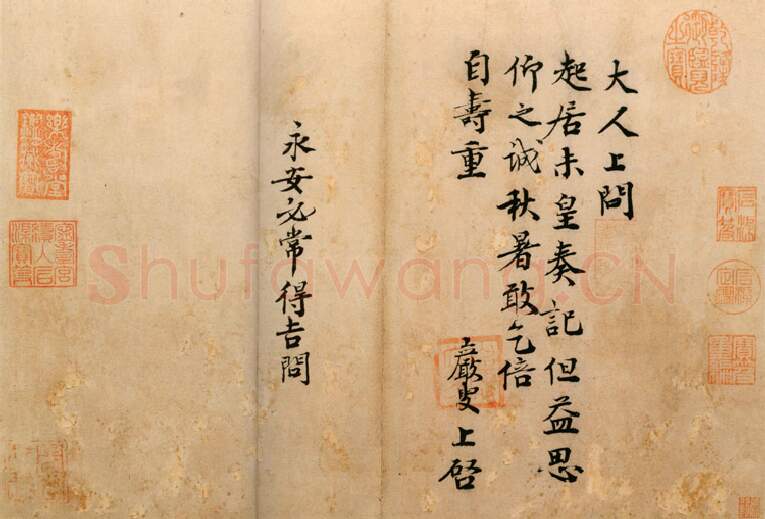 大人上問
起居未皇奏記但益思
仰之誠秋暑敢乞倍
自壽重
巖叟上啓
永安必常得吉問
Shufawang.CN